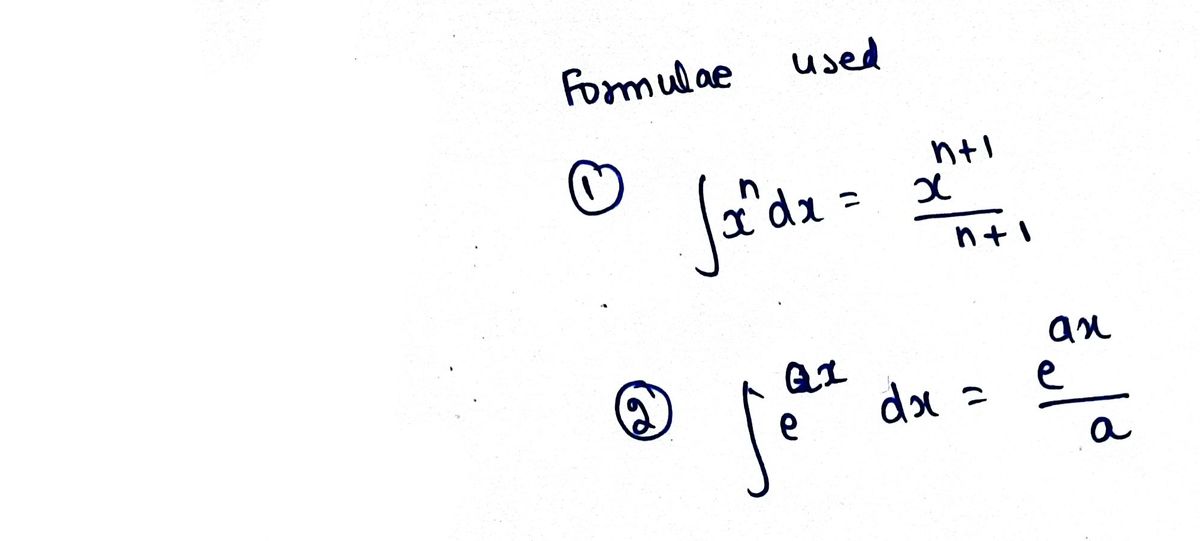 Formulae used
① ∫xⁿ dx = xⁿ⁺¹/n+1
② ∫e^ax dx = e^ax/a